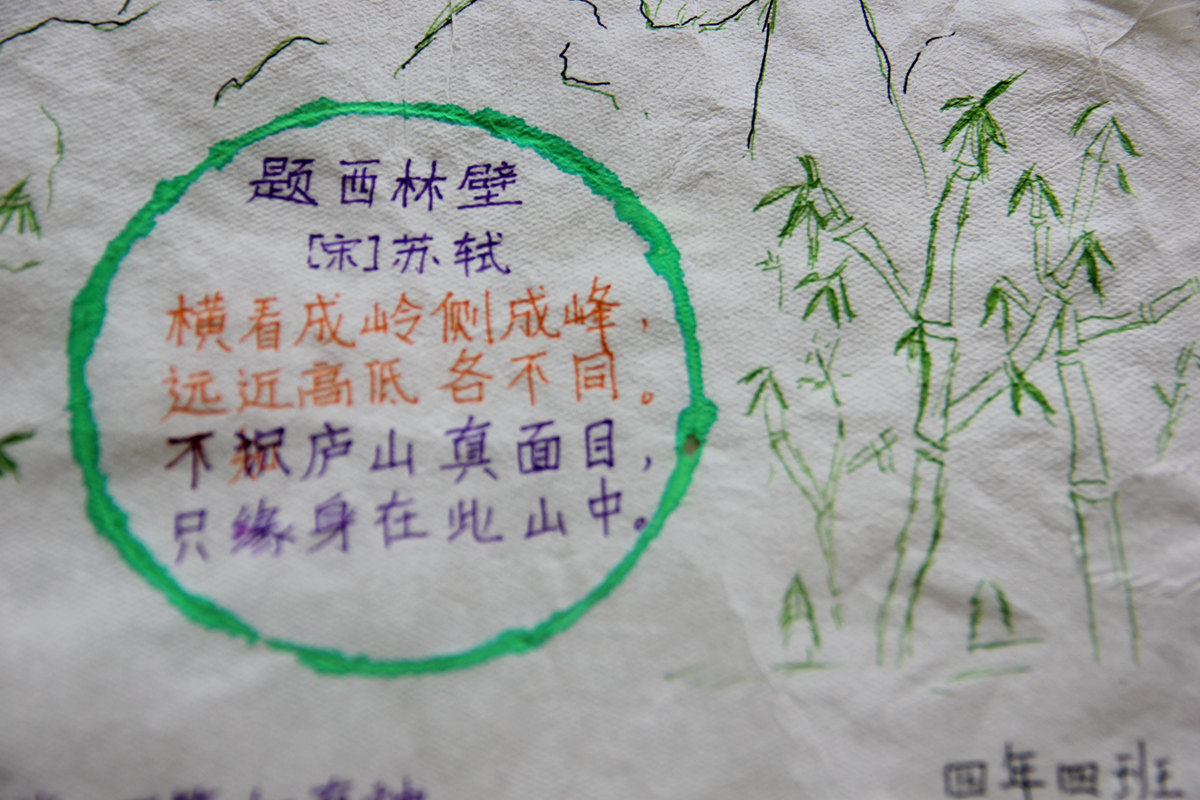 题西林壁
[宋]苏轼
横看成岭侧成峰，
远近高低各不同。
不识庐山真面目，
只缘身在此山中。
四年四班